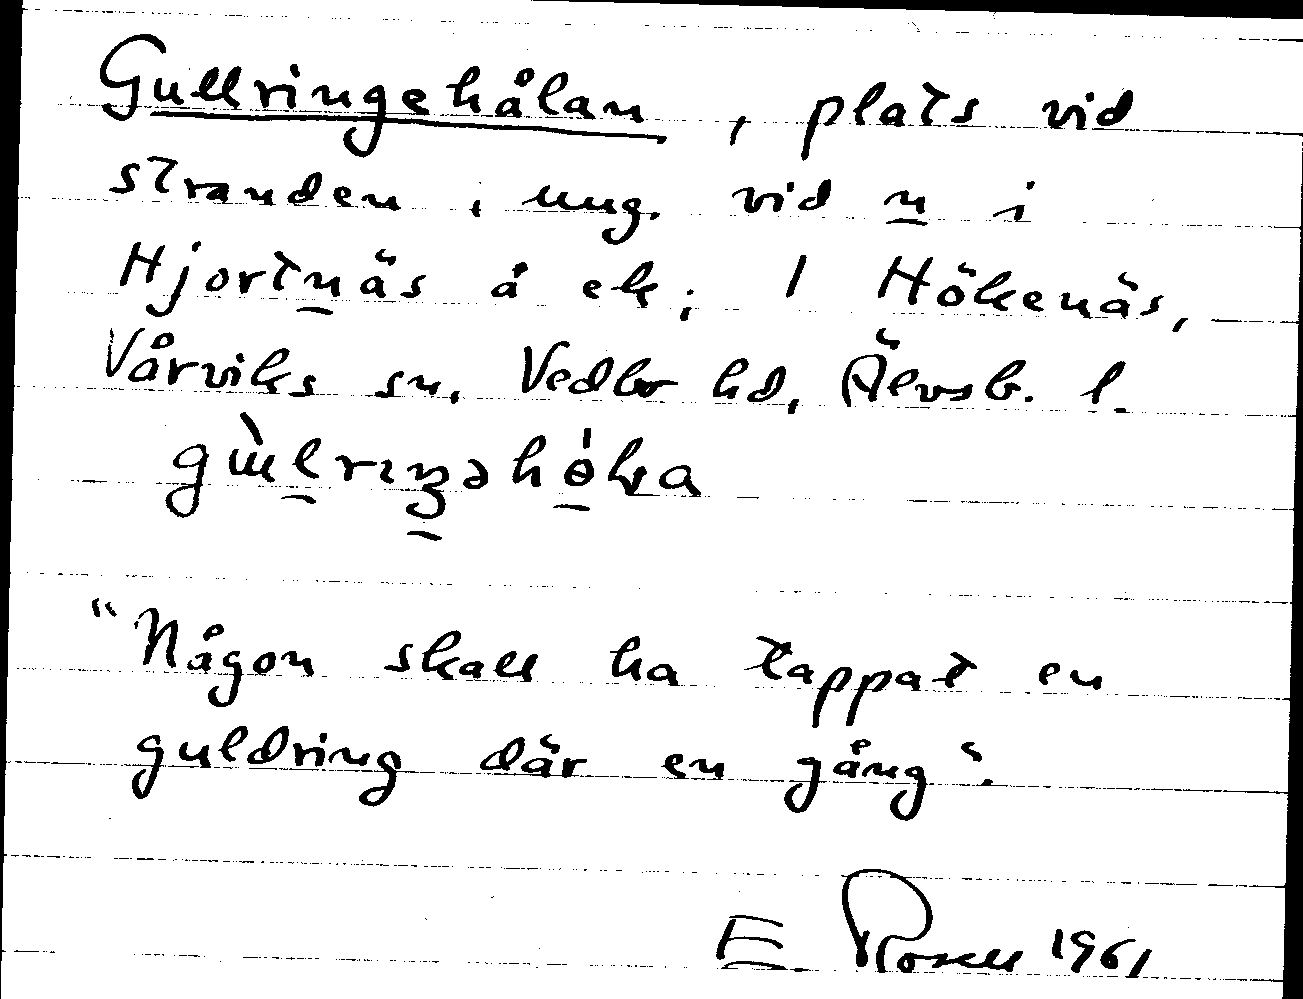 Gullringehålan, plats vid
stranden, ung. vid n i
Hjortnäs å ek; 1 Hökenäs,
Vårviks sn, Vedbo hd, Älvsb. l.
"Någon skall ha tappat en
guldring där en gång".
E. Rosell 1961